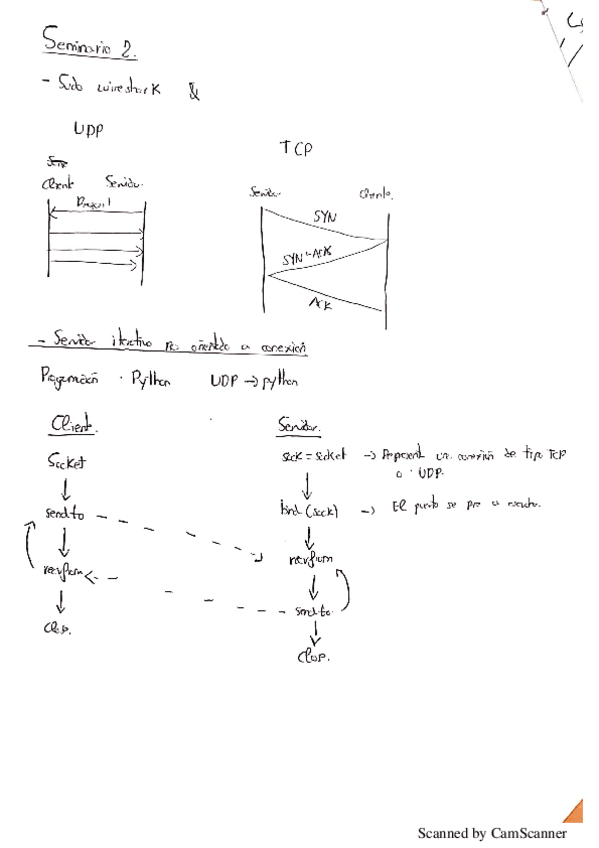 Seminario 2.
- Sudo wireshark &
UDP
Cliente Servidor
TCP
Servidor Cliente
SYN
SYN-ACK
ACK
- Servidor iterativo no orientado a conexión
Programación · Python UDP → python
Client.
Socket
sendto
recvfrom
Servidor.
sock = socket → Represent un conexión de tipo TCP
o UDP.
bind (sock) → El puerto se pone a
recvfrom
sendto
Scanned by CamScanner